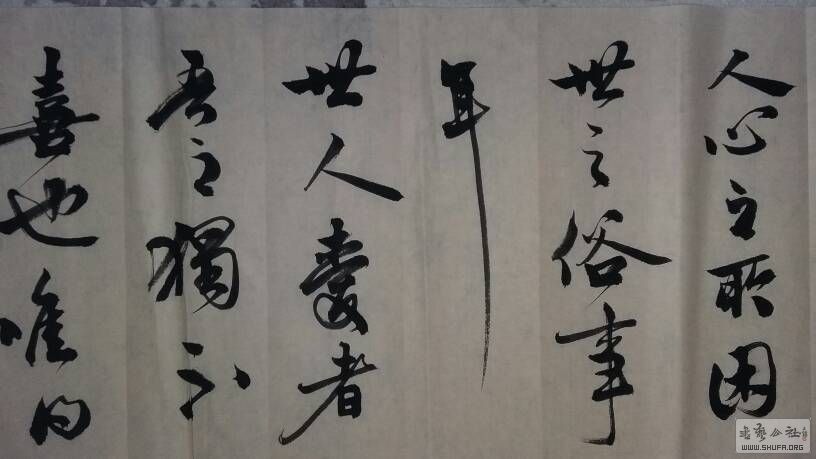 人心之所困
世之俗事
耳
世人愛者
吾之獨不
喜也唯
公社
WWW.SHUFA.ORG